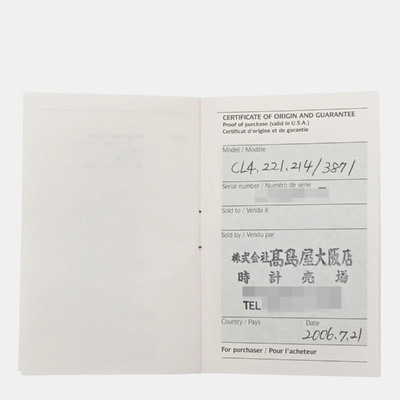 CERTIFICATE OF ORIGIN AND GUARANTEE
Proof of purchase (valid in U.S.A.)
Certificat d'origine et de garantie
Model / Modèle
CL4.221.214/3871
Serial number / Numéro de série
Sold to / Vendu à
Sold by / Vendu par
株式会社髙島屋大阪店
時計売場
TEL
Country / Pays Date
2006.7.21
For purchaser / Pour l'acheteur